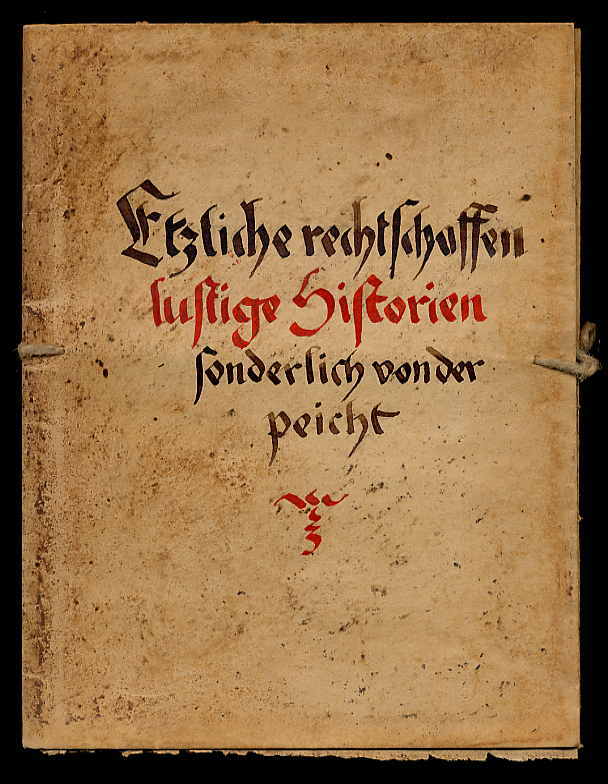 Etzliche rechtschaffen
lustige Historien
sonderlich von der
peicht